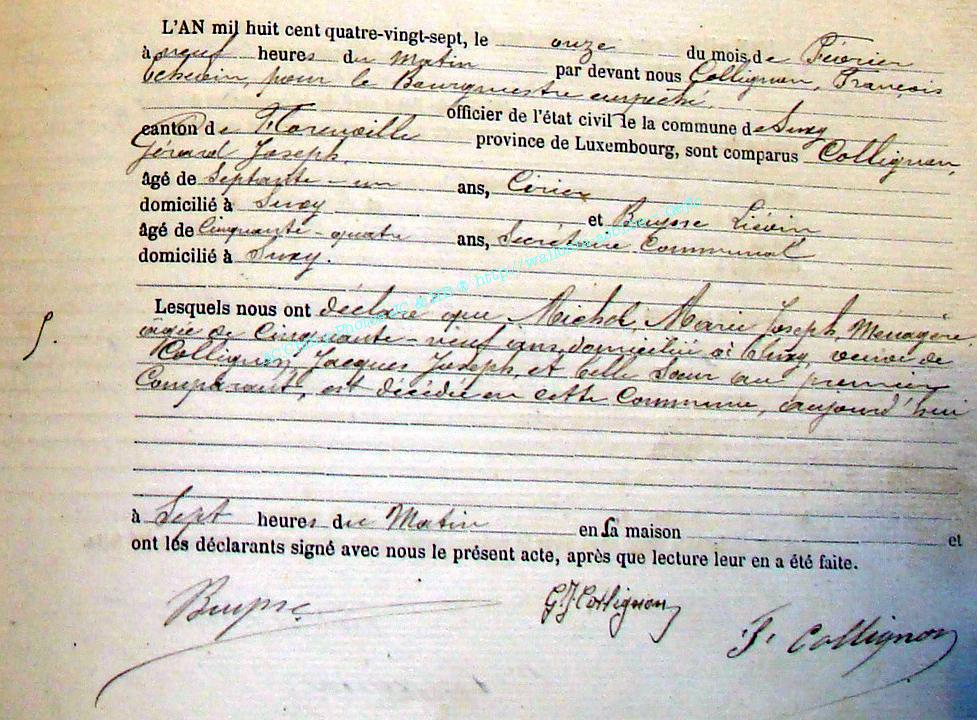 L'AN mil huit cent quatre-vingt-sept, le onze du mois de Février
à neuf heures du Matin par devant nous Collignon, François
échevin, pour le Bourgmestre empêché.
officier de l'état civil de la commune de Suxy
canton de Florenville province de Luxembourg, sont comparus Collignon,
Gérard Joseph,
âgé de Septante-un ans, Cirier
domicilié à Suxy et Buysse Liévin
âgé de Cinquante-quatre ans, Secrétaire Communal
domicilié à Suxy.
Lesquels nous ont déclaré que Michel, Marie Joseph, Menagère
âgée de Cinquante-neuf ans, domiciliée à Suxy, veuve de
5.
Collignon, Jacques Joseph, et belle Soeur au premier
Comparant, est décédée en cette Commune, aujourd'hui
à Sept heures du Matin en sa maison et
ont les déclarants signé avec nous le présent acte, après que lecture leur en a été faite.
Buysse
G J Collignon
F. Collignon